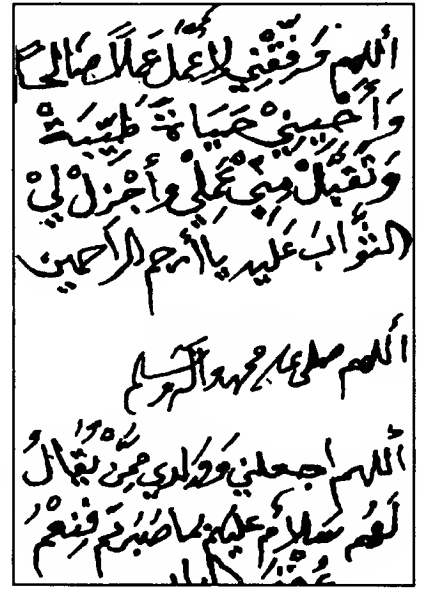 اللهم وَفِّقْنِي لِأَعْمَلَ عَمَلًا صَالِحًا
وَأَحْيِينِيْ حَيَاةً طَيِّبَةْ
وَتَقَبَّلْ مِنِّيْ عَمَلِيْ وأَجْزِلْ لِيْ
الثَّوَّابَ عَلَيْهِ يَاأرحم الراحمين
اللهم صلى على محمد وآله وسلم
اللهم اجعلني وَوَلدي مِمَّنْ يُقَالُ
لَهُم سَلَامٌ عليهم بما صَبَرتم فنِعْمَ
عُقْبَى الدار